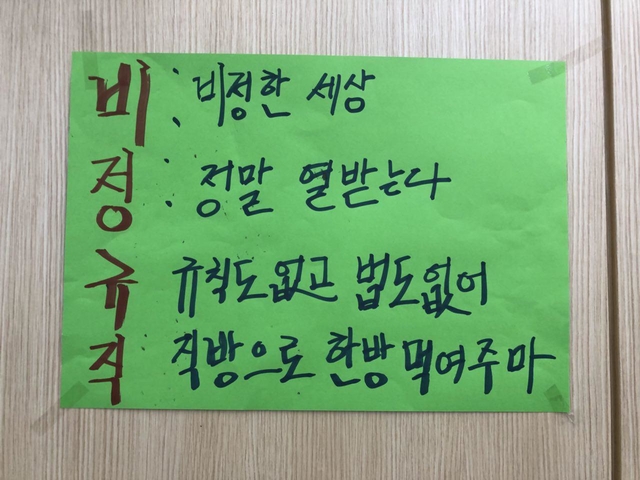 비 : 비정한 세상
정 : 정말 열받는다
규 규칙도 없고 법도 없어
직 직방으로 한방 먹여주마